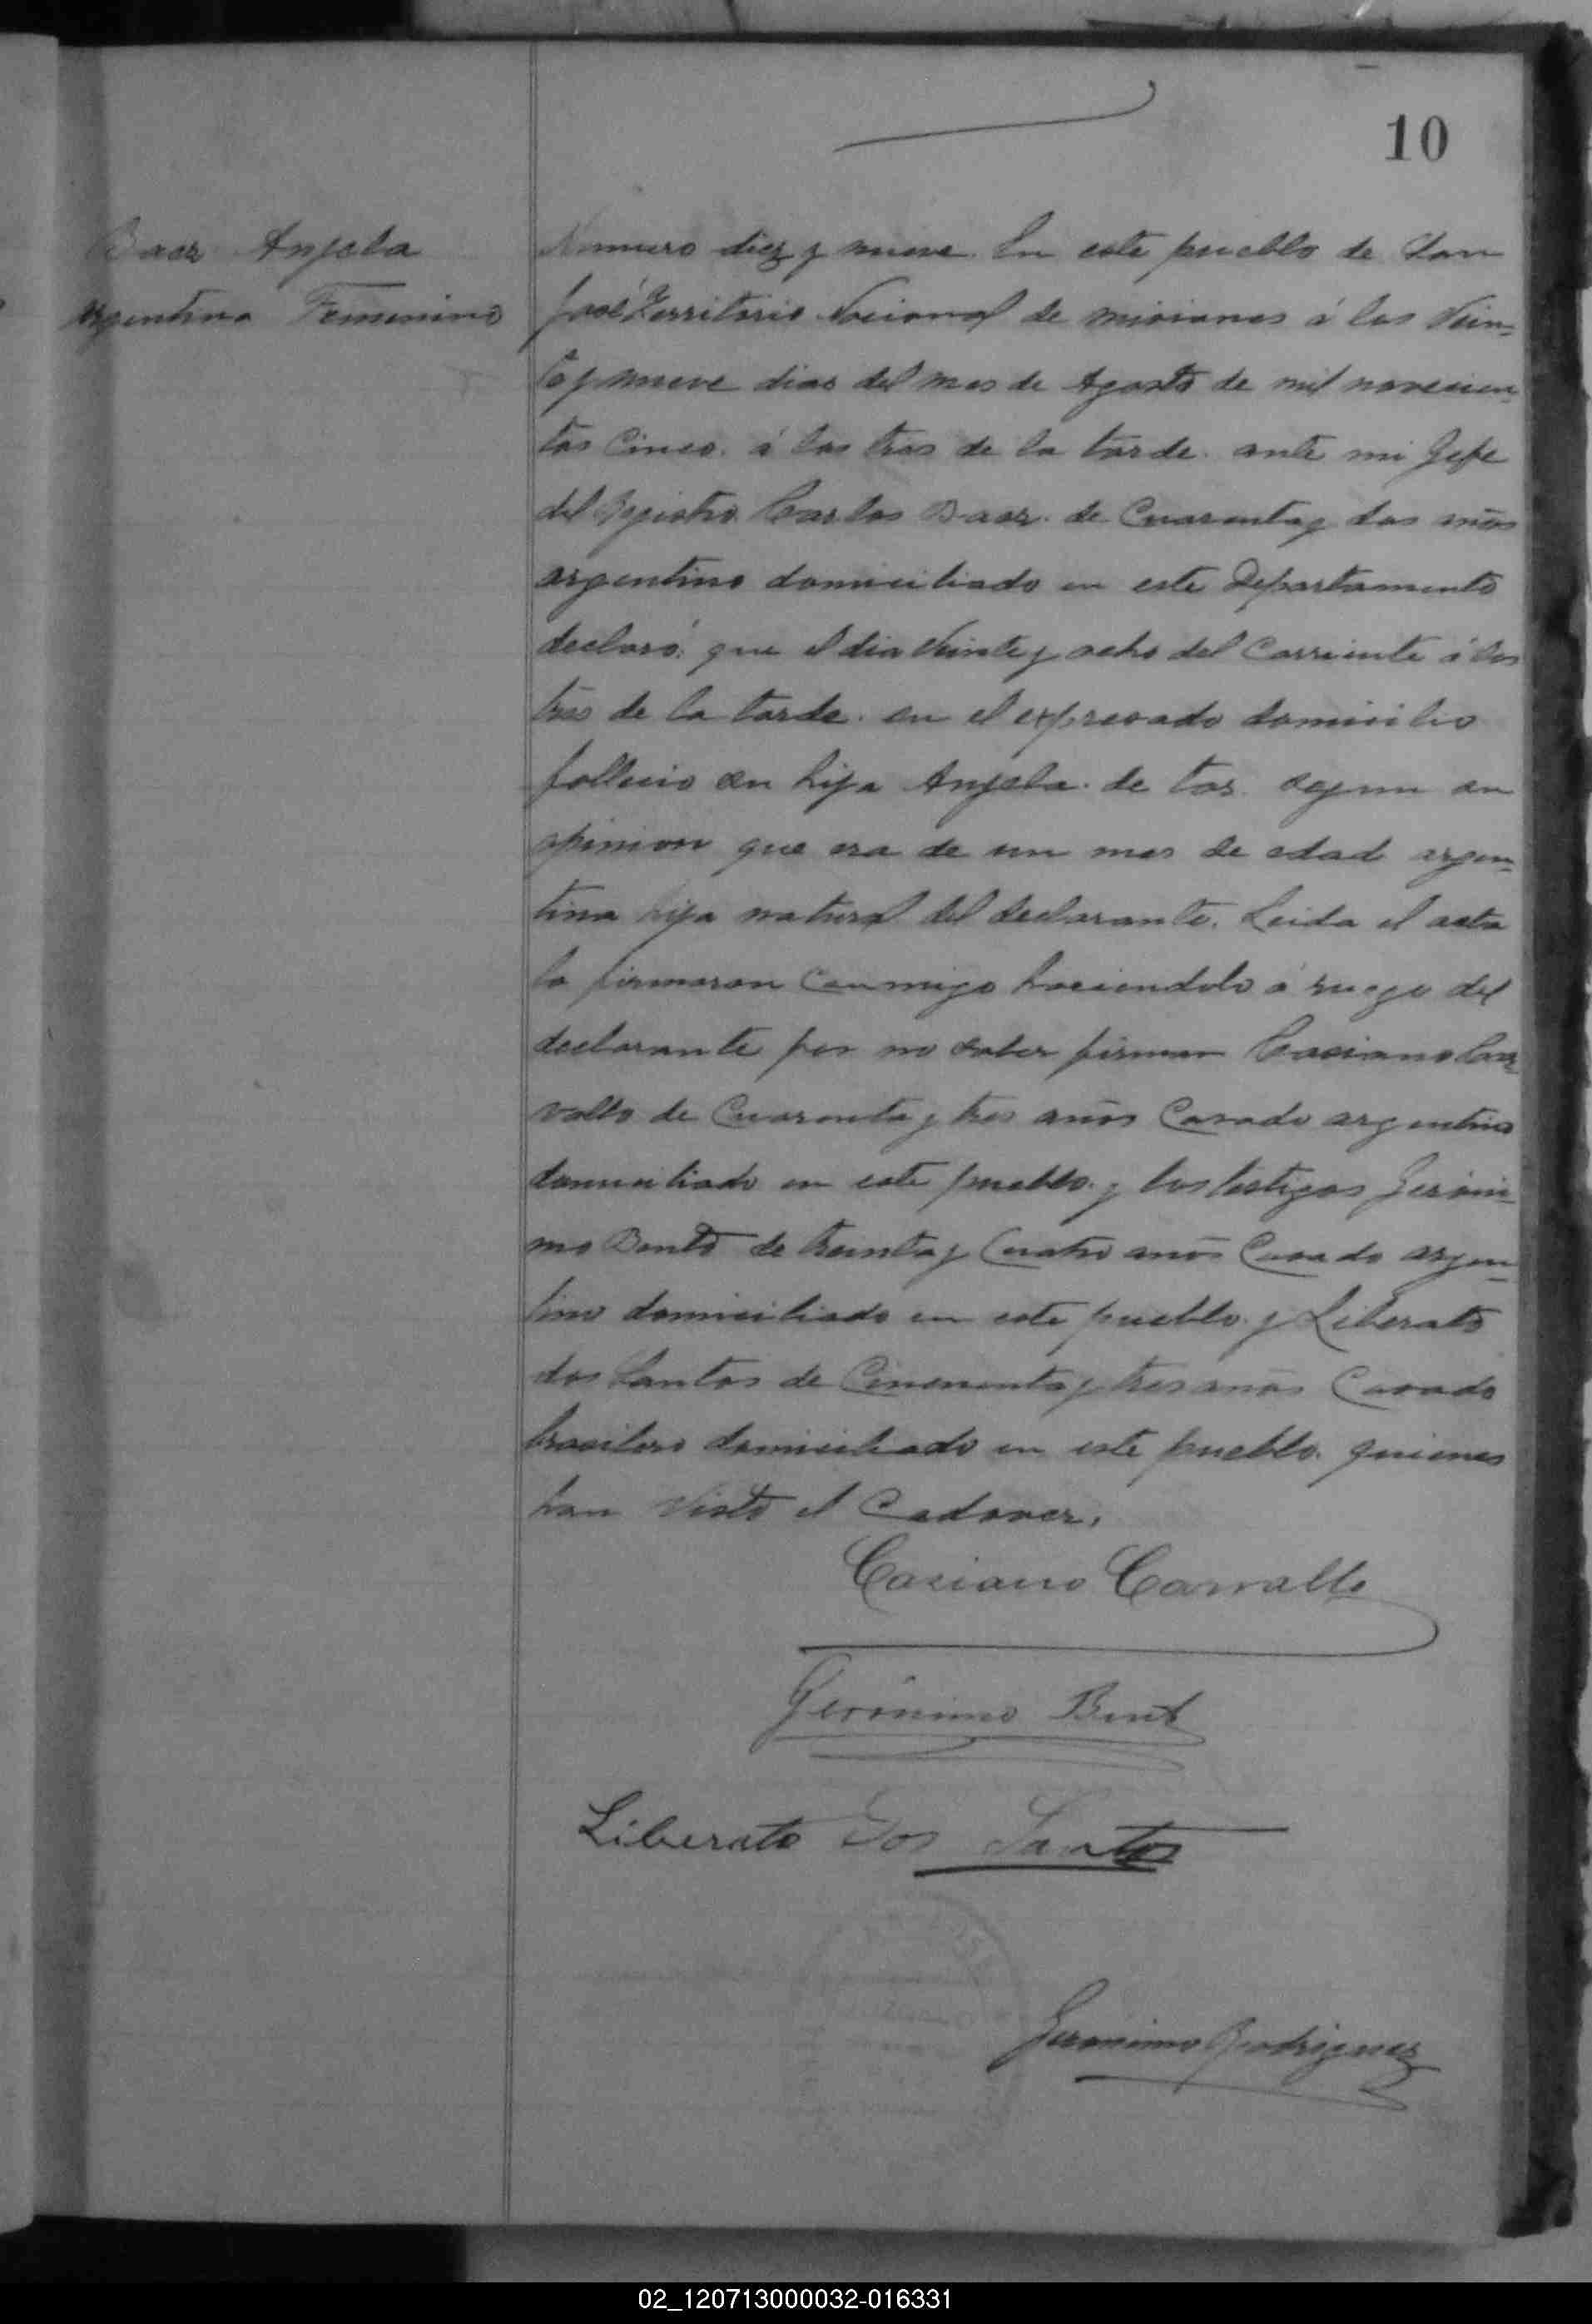 10
Baez Anjela
argentina Femenino
Numero diez y nueve. En este pueblo de San
José Territorio Nacional de misiones á los Vein-
te y nueve dias del mes de Agosto de mil novecien-
tos Cinco. á las tres de la tarde. ante mi Gefe
del Registro. Carlos Baez. de Cuarenta y dos años
argentino domiciliado en este Departamento
declaró: que el dia Veinte y ocho del Corriente á las
tres de la tarde. en el expresado domicilio
fallecio su hija Anjela. de tos. segun su
opinion que era de un mes de edad argen-
tina hija natural del declarante. Leida el acta
la firmaron Conmigo haciendolo á ruego del
declarante por no saber firmar Casiano Car-
vallo de Cuarenta y tres años Casado argentino
domiciliado en este pueblo. y los testigos Geróni-
mo Bento de treinta y Cuatro años Casado argen-
tino domiciliado en este pueblo. y Liberato
dos Santos de Cincuenta y tres años Casado
brasilero domiciliado en este pueblo. quienes
han Visto el Cadaver.
Casiano Carvallo
Gerónimo Bent
Liberato Dos Santos
Geronimo Rodriguez
02_120713000032-016331